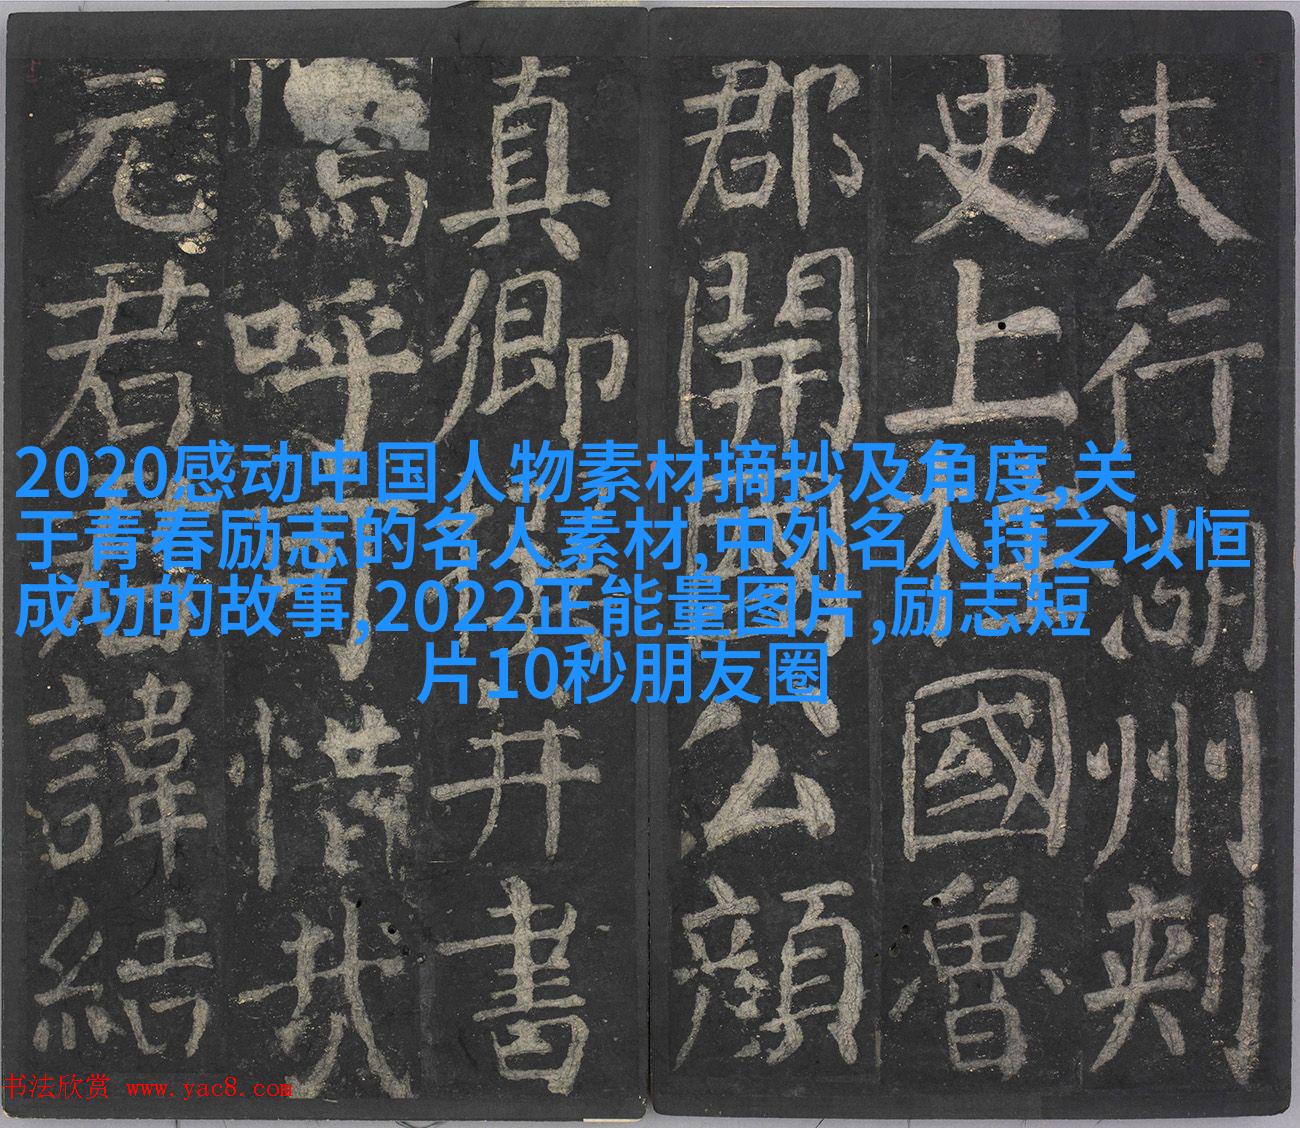 夫行湖州刾
史上柱國魯
郡開國公顔
真卿撰并書
嗚呼可惜哉
元君君諱結
2020感动中国人物素材摘抄及角度,关
于青春励志的名人素材,中外名人持之以恒
成功的故事,2022正能量图片,励志短
片10秒朋友圈
书法欣赏 www.yac8.com